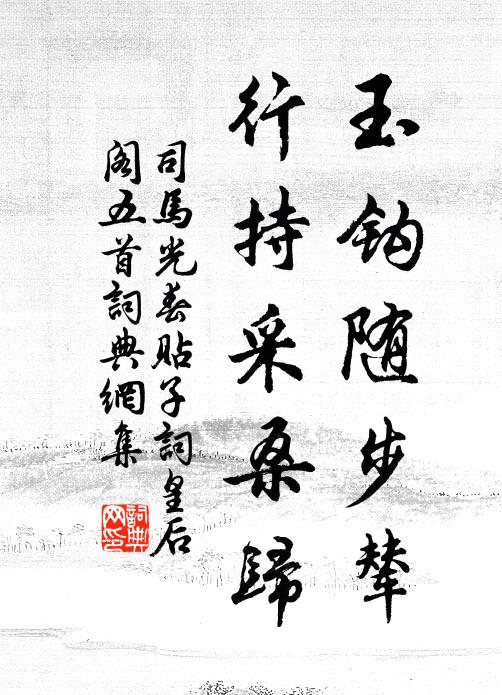 玉鈎随步輦
行持采桑歸
司馬光春貼子詞皇后
閣五首詞典網集
詞典网印